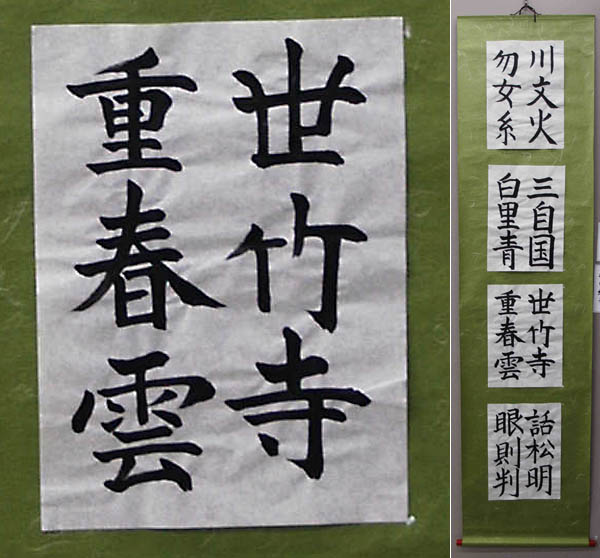 世竹寺
重春雲
川文火
勿女糸
三自国
白里青
世竹寺
重春雲
話松明
眼則判